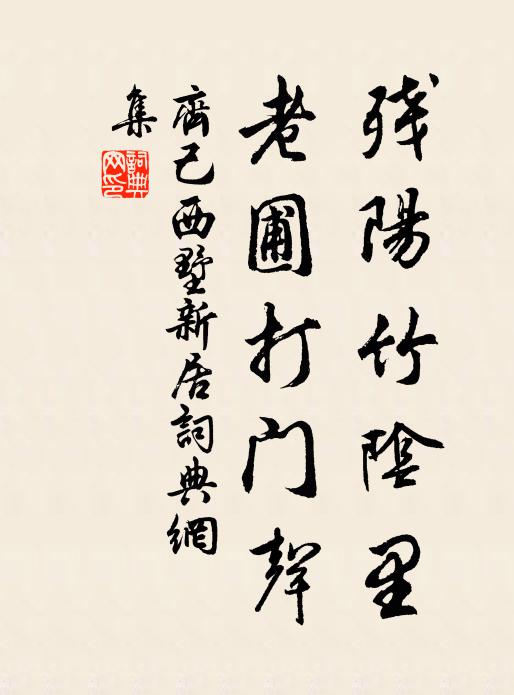 残陽竹陰里
老圃打门聲
齊己西墅新居詞典網
集
詞典网印